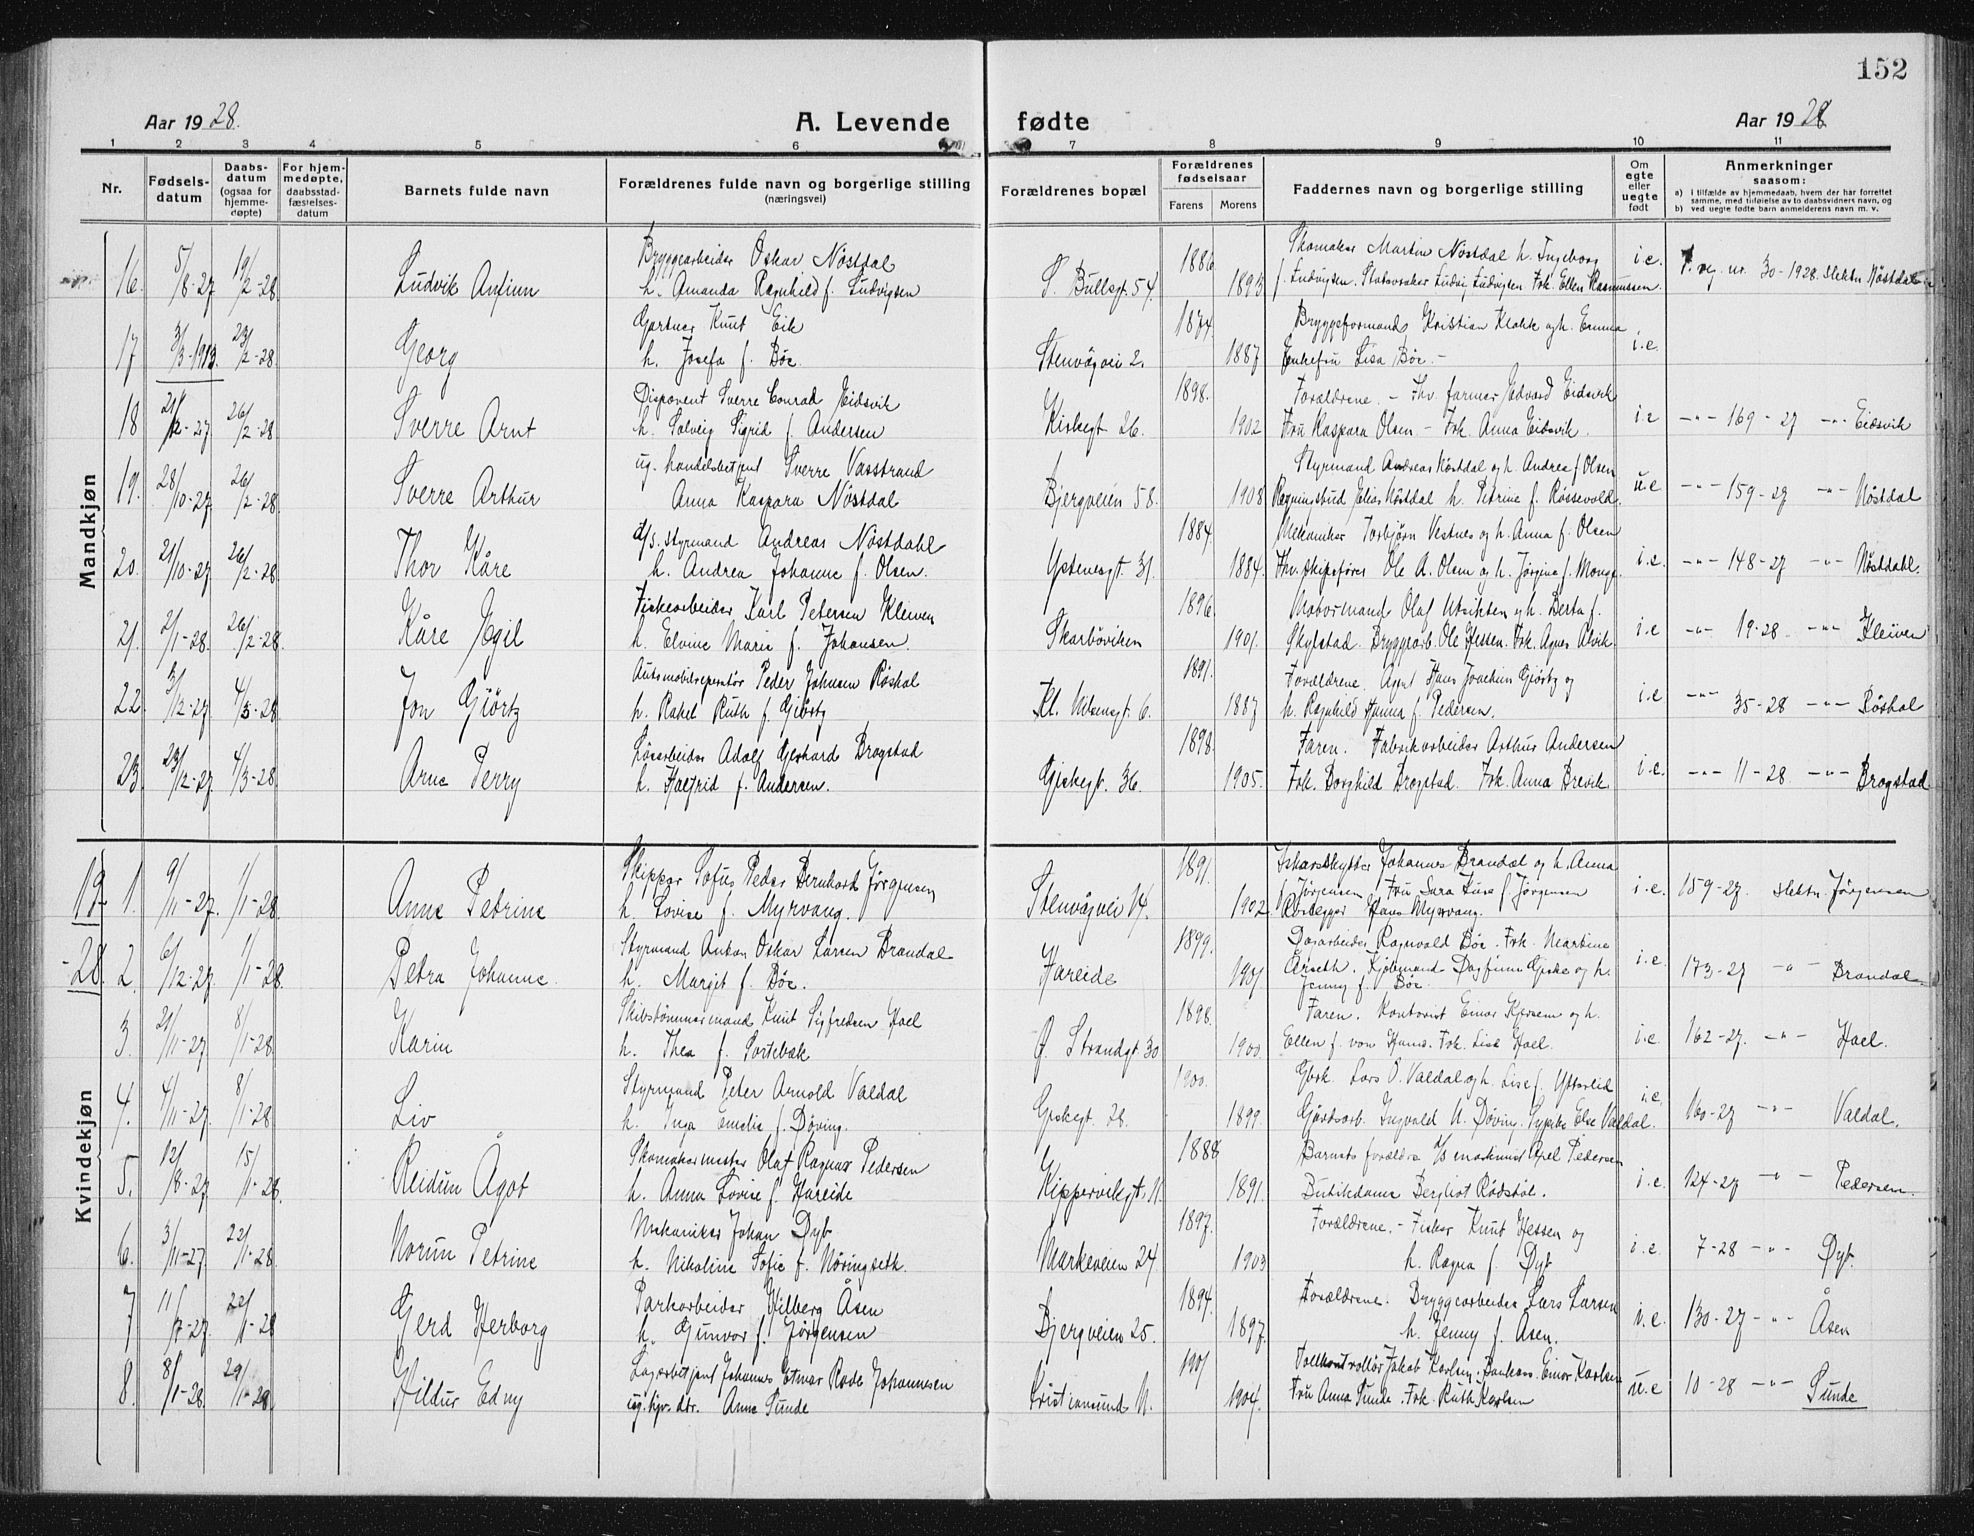 152
Aar 1928.
A. Levende fødte
Aar 1928
1 2 3 4 5 6 7 8 9 10 11
Nr.
Fødsels-
datum
Daabs-
datum
(ogsaa for
hjemme-
døpte)
For hjem-
medøpte,
daabsstad-
fæstelses-
datum
Barnets fulde navn
Forældrenes fulde navn og borgerlige stilling
(næringsvei)
Forældrenes bopæl
Forældrenes
fødselsaar
Farens Morens
Faddernes navn og borgerlige stilling
Om
egte
eller
uegte
født
Anmerkninger
saasom:
a) i tilfælde av hjemmedaab, hvem der har forrettet
samme, med tilføielse av to daabsvidners navn, og
b) ved uegte fødte barn anmelderens navn m. v.
Mandkjøn
16. 5/8-27 19/2-28 Ludvik Anfinn
Bryggearbeider Oskar Nöstdal
h. Amanda Ragnhild f. Ludvigsen
S. Bullsgt. 54. 1886 1893
Skomaker Martin Nöstdal h. Ingeborg
f. Ludvigsen. Ludvig Ludvigsen Frk. Ellen Rasmussen.
i.e. F. reg. nr. 30-1928. slektn. Nöstdal
17 3/3-1913. 23/2-28 Georg
Gartner Knut Eik
h. Josefa f. Böe.
Stenvågvei 2. 1874. 1887
Bryggeformand Kristian Klokk og h. Emma
Enkefru Lisa Böe. -
i.e.
18 21/12-27 26/2-28 Sverre Arnt
Disponent Sverre Conrad Eidsvik
h. Solveig Sigrid f. Andersen
Kirkegt 26. 1898. 1902
Forældrene. - Fhv. farmer Edvard Eidsvik
Fru Kaspara Olsen. - Frk. Anna Eidsvik.
i.e -"- 169-27 -"- Eidsvik
19. 28/10-27 26/2-28. Sverre Arthur
ug. handelsbetjent Sverre Vasstrand
Anna Kaspara Nöstdal
Bjergveien 58. 1908
Styrmand Andreas Nöstdal og h. Andrea f. Olsen
Elias Nöstdal h. Petrine f. Rössevold.
u.e -"- 159-27 -"- Nöstdal
20. 21/10-27 26/2-28. Thor Kåre
d/s. styrmand Andreas Nöstdahl
h. Andrea Johanne f. Olsen.
Ystenesgt. 31. 1884 1884.
Mekaniker Torbjörn Vestnes og h. Anna f. Olsen
Fhv. skipsförer Ole A. Olsen og h. Jörgine f.
i.e. -"- 148-27 -"- Nöstdahl.
21. 2/1-28. 26/2-28. Kåre Egil
Fiskearbeider Karl Petersen Kleiven
h. Elvine Marie f. Johansen.
Skarböviken 1896. 1901.
Motormand Olaf og h. Berta f.
Skylstad. Bryggearb. Ole Hessen. Frk. Agnes Alvik.
i.e -"- 19-28 -"- Kleiven
22. 3/12-27. 4/3-28 Jon Giörtz
Automobilreparatör Peder Johnsen Röshol
h. Rakel Ruth f. Giörtz
Kl. Nilsensgt. 6. 1891. 1887
Forældrene. Agent Hans Joachim Giörtz og
h. Ragnhild Hanna f. Pedersen.
i.e -"- 35-28 -"- Röshol
23. 23/12-27 4/3-28. Arne Perry
Lösarbeider Adolf Gerhard Brogstad
h. Halfrid f. Andersen.
Giskegt. 36. 1898. 1905.
Faren. Fabrikarbeider Arthur Andersen
Frk. Borghild Brogstad. Frk. Anna Brevik
i.e. -"- 11-28 -"- Brogstad
Kvindekjøn
19
-28.
1. 9/11-27. 1/1-28. Anne Petrine
Skipper Sofus Peder Bernhard Jörgensen
h. Lovise f. Myrvang.
Stenvågvei 14. 1891. 1902.
Johannes Brandal og h. Anna
f. Jörgensen Fru Sara f. Jörgensen
Hans Myrvang.
i.e. 159-27. slektn. Jörgensen
2. 6/12-27. 1/1-28. Petra Johanne
Styrmand Anton Oskar Larsen Brandal
h. Margit f. Böe.
Hareide 1899. 1901
Ragnvald Böe. Frk. Martine
Årseth. Kjöbmand Dagfinn Giske og h.
Jenny f. Böe
i.e. 173-27 -"- Brandal
3. 21/11-27 8/1-28. Karin
Skibstömmermand Knut Sigfredsen Hoel
h. Thea f. Sortebæk
Ö. Strandgt 30 1898. 1900.
Faren. Kontorist Einar og h.
Ellen f. von Hans. Frk. Lise Hoel.
i.e. 162-27. -"- Hoel.
4. 4/11-27. 8/1-28 Liv
Styrmand Peter Arnold Valdal
h. Inga Emelie f. Döving.
Giskegt. 28. 1900. 1899.
Gbrk. Lars O. Valdal og h. Lise f. Ytterlid
Gårdsarb. Ingvald N. Döving. Syerske Else Valdal.
i.e. 160-27 -"- Valdal.
5. 12/8-27. 15/1-28. Reidun Ågot
Skomakermester Olaf Ragnar Pedersen
h. Anna Lovise f. Hareide
Kippervikgt. 11. 1888 1891.
Barnets forældre d/s maskinist Axel Pedersen
Butikdame Bergliot Rödstöl.
i.e. 124-27 -"- Pedersen.
6. 3/11-27 22/1-28. Norun Petrine
Mekaniker Johan Dyb
h. Nikoline Sofie f. Nöringseth.
Markeveien 24 1897. 1903
Forældrene. - Fisker Knut Hessen og
h. Ragna f. Dyb
i.e. 7-28 -"- Dyb.
7 11/7-27. 22/1-28 Gerd Herborg
Parkarbeider Hilberg Åsen
h. Gunvor f. Jörgensen
Bjergveien 25. 1894. 1897.
Forældrene. Bryggearbeider Lars Larsen
h. Jenny f. Åsen.
i.e. 130-27 -"- Åsen
8. 8/1-28. 29/1-28. Hildur Edny
Lagerbetjent Johannes Etmar Rode Johannesen
ug. hjv. dtr. Anna Sunde
Kristiansund N. 1901 1904.
Tollkontrollör Jakob Karlsen. Bankass. Einar Karlsen
Fru Anna Sunde. Frk. Ruth Karlsen
u.e 10-28 -"- Sunde